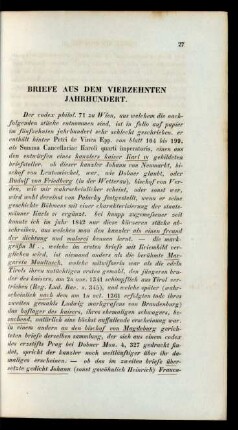 27
BRIEFE AUS DEM VIERZEHNTEN
JAHRHUNDERT.
Der codex philol. 71 zu Wien, aus welchem die nach-
folgenden stücke entnommen sind, ist in folio auf papier
im funfzehnten jahrhundert sehr schlecht geschrieben. er
enthält hinter Petri de Vinea Epp. von blatt 104 bis 199,
als Summa Cancellariae Karoli quarti imperatoris, einen aus
den entwürfen eines kanzlers kaiser Karl IV gebildeten
briefsteller. ob dieser kanzler Johann von Neumarkt, bi-
schof von Leutomischel, war, wie Dolner glaubt, oder
Rudolf von Friedberg (in der Wetterau), bischof von Ver-
den, wie mir wahrscheinlicher scheint, oder sonst wer,
wird wohl dereinst von Palacky festgestellt, wenn er seine
geschichte Böhmens mit einer charakterisierung der staats-
männer Karls IV ergänzt. bei knapp zugemessener zeit
konnte ich im jahr 1842 nur diese kürzeren stücke ab-
schreiben, aus welchen man den kanzler als einen freund
der dichtung und malerei kennen lernt. — die mark-
gräfin M., welche im ersten briefe mit Kriemhild ver-
glichen wird, ist niemand anders als die berühmte Mar-
garete Maultasch, welche missfhaete war als die edeln
Tirols ihren natürlichen
bruder des kaisers, am 2n nov. 1341 schimpflich aus Tirol ver-
trieben (Reg. Lud. Bav. s. 345), und welche später (wahr-
scheinlich nach dem am 1n oct. 1361 erfolgten tode ihres
zweiten gemahls Ludwig markgrafen von Brandenburg)
das hoflager des kaisers, ihres ehemaligen schwagers, be-
suchend, natürlich eine höchst auffallende erscheinung war.
in einem andern an den bischof von Magdeburg gerich-
teten briefe derselben sammlung, der sich aus einem codex
des erzstifts Prag bei Dobner Mon. 4, 327 abermackt fin-
det, spricht der kanzler noch weitläuftiger über ihr da-
maliges erscheinen. — ob das im zweiten briefe über-
setzte gedicht Johann (sonst gewöhnlich Heinrich) Frauen-